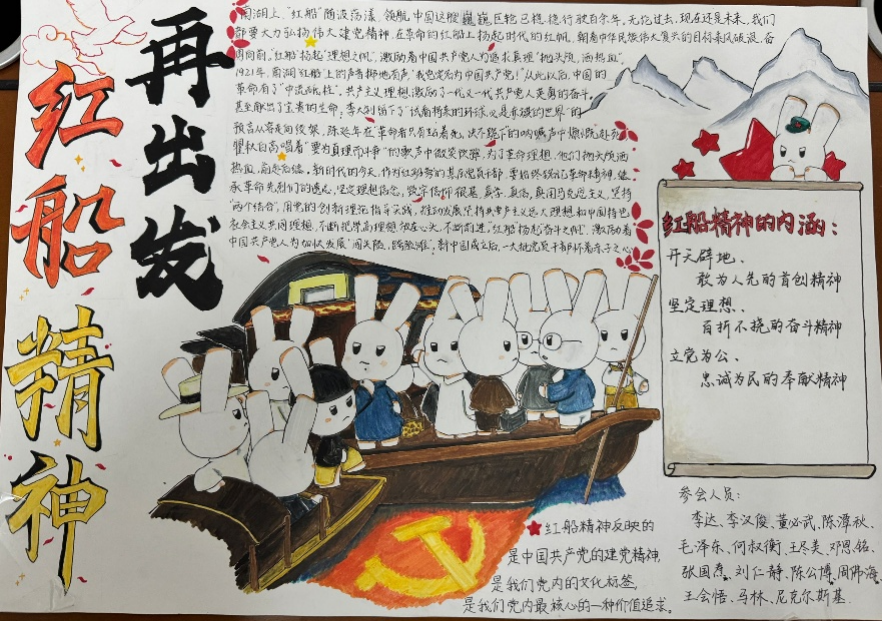 红船精神
再出发
南湖上,"红船"随波荡漾,领航中国这艘巍巍巨轮已稳稳行驶百余年。无论过去、现在还是未来,我们
都要大力弘扬伟大建党精神,在革命的红船上扬起时代的红帆,朝着中华民族伟大复兴的目标乘风破浪、奋
勇向前。"红船"扬起"理想之帆",激励着中国共产党人为追求真理"抛头颅、洒热血"。
1921年,南湖"红船"上的声音掷地有声:"我党定名为中国共产党!"从此以后,中国的
革命有了"中流砥柱"。共产主义理想,激励了一代又一代共产党人英勇的奋斗,
甚至献出了宝贵的生命:李大钊留下了"试看将来的环球,必是赤旗的世界"的
预言从容走向绞架,陈延年在"革命者只有站着死,决不跪下"的呐喊声中慷慨赴死,
瞿秋白高唱着"要为真理而斗争"的歌声中微笑饮弹,为了革命理想,他们抛头颅洒
热血,前赴后继。新时代的今天,作为红动力的基层党员干部,要始终铭记革命精神,继
承革命先烈们的遗志,坚定理想信念,
"两个结合",用党的创新理论指导实践,推动发展坚持共产主义远大理想和中国特色
社会主义共同理想,不断把崇高理想放在心头,不断前进。"红船"扬起"奋斗之帆",激励着
中国共产党人为加快发展"闯关险、踏激滩"。新中国成立后,一大批党员干部怀着赤子之心
红船精神的内涵:
开天辟地、
敢为人先的首创精神
坚定理想、
百折不挠的奋斗精神
立党为公、
忠诚为民的奉献精神
红船精神反映的
是中国共产党的建党精神,
是我们党内的文化标签,
是我们党内最核心的一种价值追求。
参会人员:
李达、李汉俊、董必武、陈潭秋、
毛泽东、何叔衡、王尽美、邓恩铭、
张国焘、刘仁静、陈公博、周佛海、
王会悟、马林、尼克尔斯基.